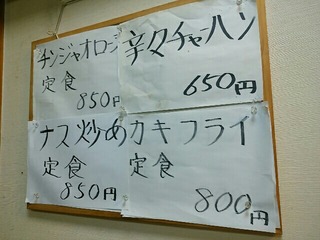 チンジャオロジ
定食
850円
辛々チャーハン
650円
ナス炒め
定食
850円
カキフライ
定食
800円